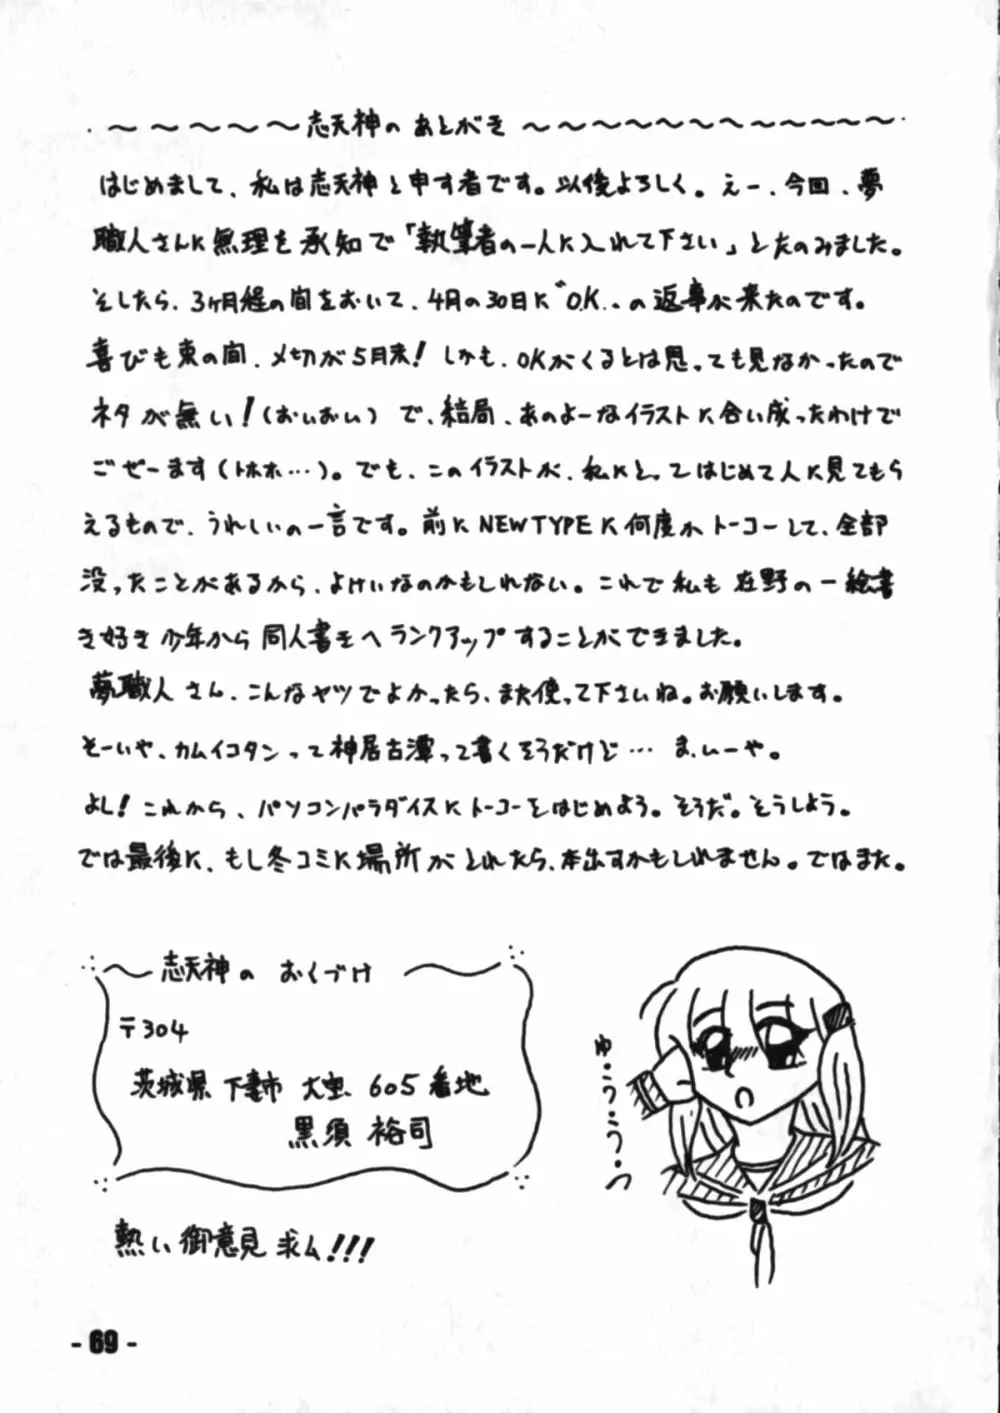 ～～～～～志天神の あとがき～～～～～～～～～～～
はじめまして、私は志天神と申す者です。以後よろしく。えー、今回、夢
職人さんに無理を承知で「執筆者の一人に入れて下さい」とたのみました。
そしたら、3ヶ月程の間をおいて、4月の30日に〝O.K.〟の返事が来たのです。
喜びも束の間、〆切が5月末！しかも、OKがくるとは思っても見なかったので
ネタが無い！(おいおい)で、結局、あのよーなイラストに合い成ったわけで
ごぜーます(トホホ…)。でも、このイラストが、私にとってはじめて人に見てもら
えるもので、うれしいの一言です。前にNEWTYPEに何度かトーコーして、全部
没ったことがあるから、よけいなのかもしれない。これで私も在野の一絵書
き好き少年から同人書きへランクアップすることができました。
夢職人さん、こんなヤツでよかったら、また使って下さいね。お願いします。
そーいや、カムイコタンって神居古潭って書くそうだけど… ま、いーや。
よし！これから、パソコンパラダイスにトーコーをはじめよう。そうだ。そうしよう。
では最後に、もし冬コミに場所がとれたら、本出すかもしれません。ではまた。
～志天神の おくづけ～
〒304
茨城県 下妻市 大宝 605番地
黒須 裕司
熱い御意見求ム!!!
ゆ・う・う・つ
- 69 -